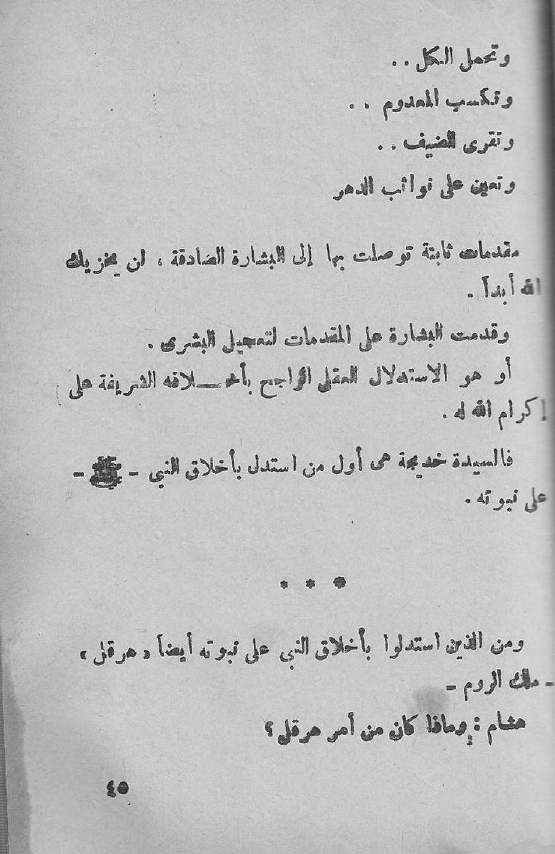 وتحمل الكل . .
وتكسب المعدوم . .
وتقرى الضيف . .
وتعين على نوائب الدهر
مقدمات ثابتة توصلت بها إلى البشارة الصادقة ، لن يخزيك
الله أبداً .
وقدمت البشارة على المقدمات لتعجيل البشرى .
أو هو الاستدلال العقلى الراجح بأخـــلاقه الشريفة على
إكرام الله له .
فالسيدة خديجة هى أول من استدل بأخلاق النبي - ﷺ -
على نبوته .
* * *
ومن الذين استدلوا بأخلاق النبي على نبوته أيضاً « هرقل »
- ملك الروم -
هشام : وماذا كان من أمر هرقل ؟
٤٥